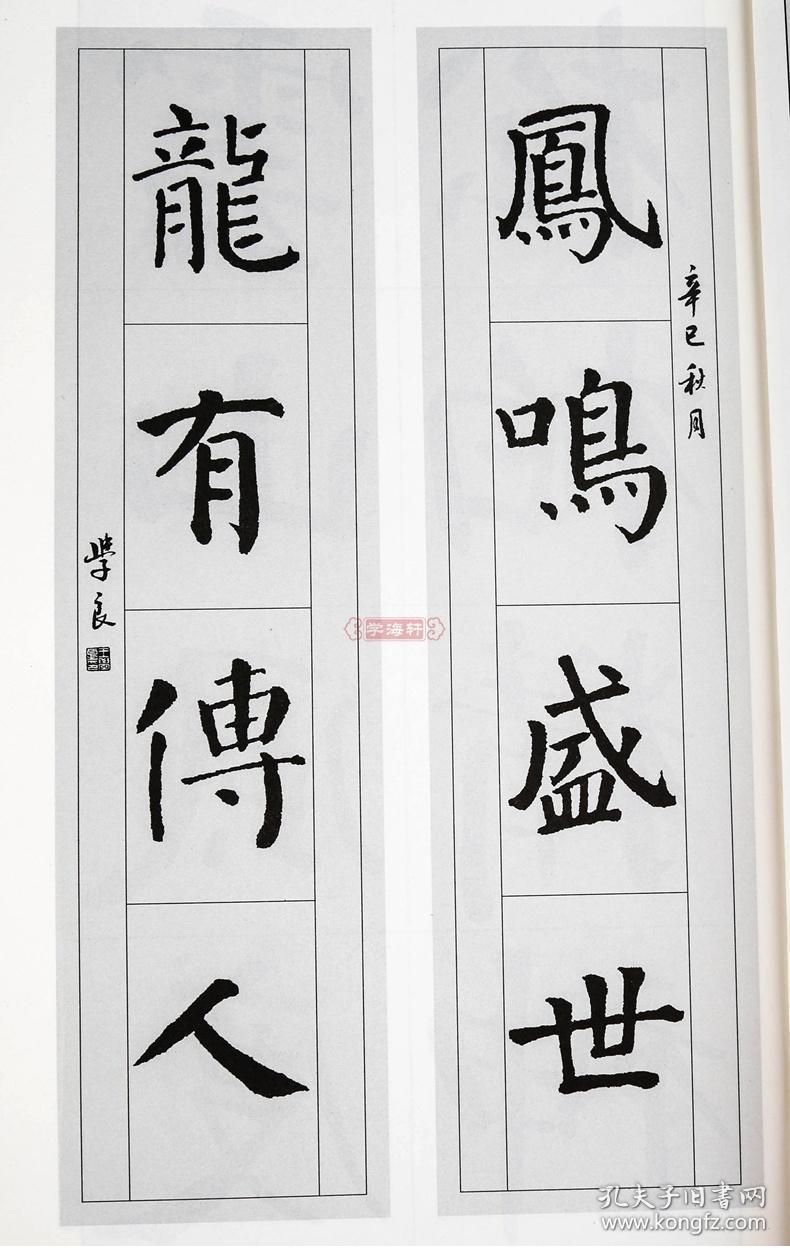 鳳鳴盛世
辛巳秋月
龍有傳人
學良
学海轩
孔夫子旧書网
www.kongfz.com